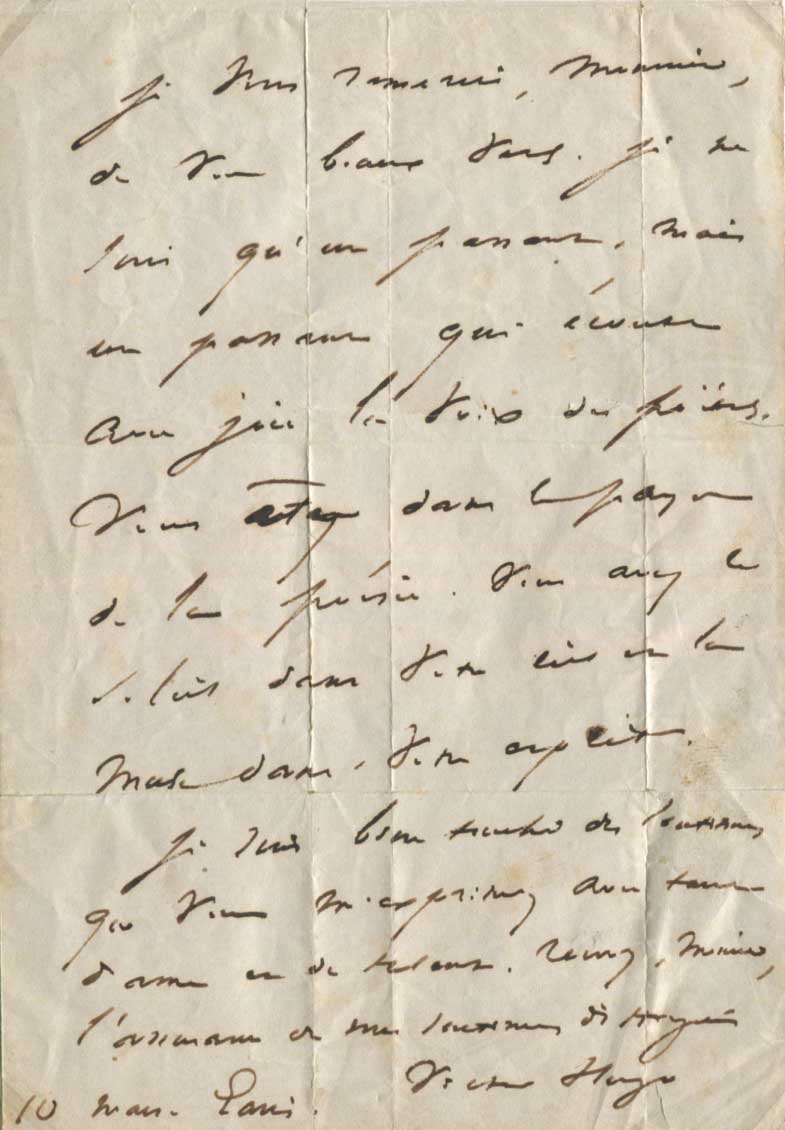 je vous remercie, monsieur,
de vos beaux vers. je ne
suis qu'un passant, mais
un passant qui écoute
avec joie la voix des poëtes.
Vous êtes dans le pays
de la poésie. Vous avez le
soleil dans votre ciel et la
muse dans votre esprit.
je suis bien touché des sentiments
que vous m'exprimez avec tant
d'âme et de talent. recevez, monsieur,
l'assurance de mes sentiments distingués
Victor Hugo
10 mars. Paris.